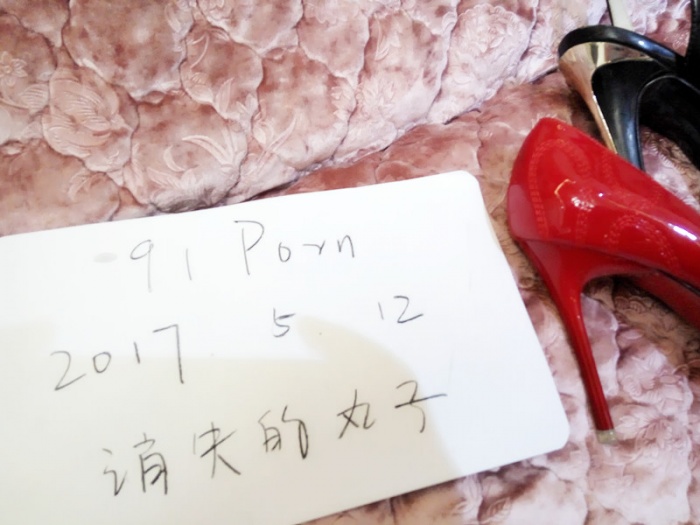 91 Porn
2017 5 12
消失的丸子